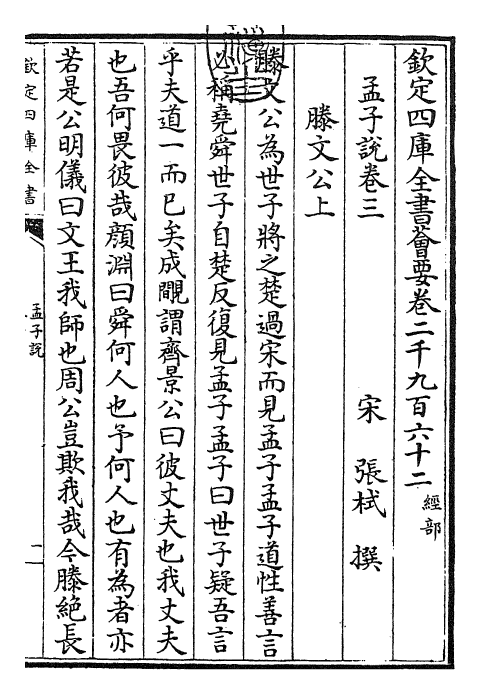 欽定四庫全書薈要卷二千九百六十二 經部
孟子說卷三 宋 張栻 撰
滕文公上
滕文公為世子將之楚過宋而見孟子孟子道性善言
必稱堯舜世子自楚反復見孟子孟子曰世子疑吾言
乎夫道一而已矣成覸謂齊景公曰彼丈夫也我丈夫
也吾何畏彼哉顏淵曰舜何人也予何人也有為者亦
若是公明儀曰文王我師也周公豈欺我哉今滕絶長
欽定四庫全書
孟子說